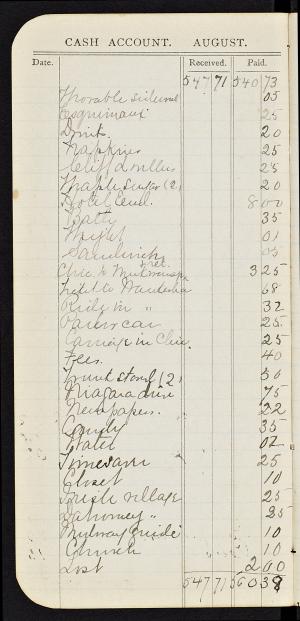 CASH ACCOUNT. AUGUST.
Date. Received. Paid.
547 71 540 73
Movable sidewalk 05
Esquimaux 25
Drink. 20
Napkins 25
Cliff dwellers 25
Maple Sugar (2) 20
Hotel Eend. 8 00
Batty 35
Weight 01
Sandwich 05
Chic. to ret. 3 25
Ticket to 68
Ride in " 32
Parlor car 25
Carriage in Chic. 25
Fees. 40
Trunk stored (2) 50
Niagara drive 75
Newspapers. 22
Candy 35
Water 02
25
Closet 10
Irish village 25
Dahomey " 25
Midway Guide 10
Church 10
Lost 2 00
547 71 560 38